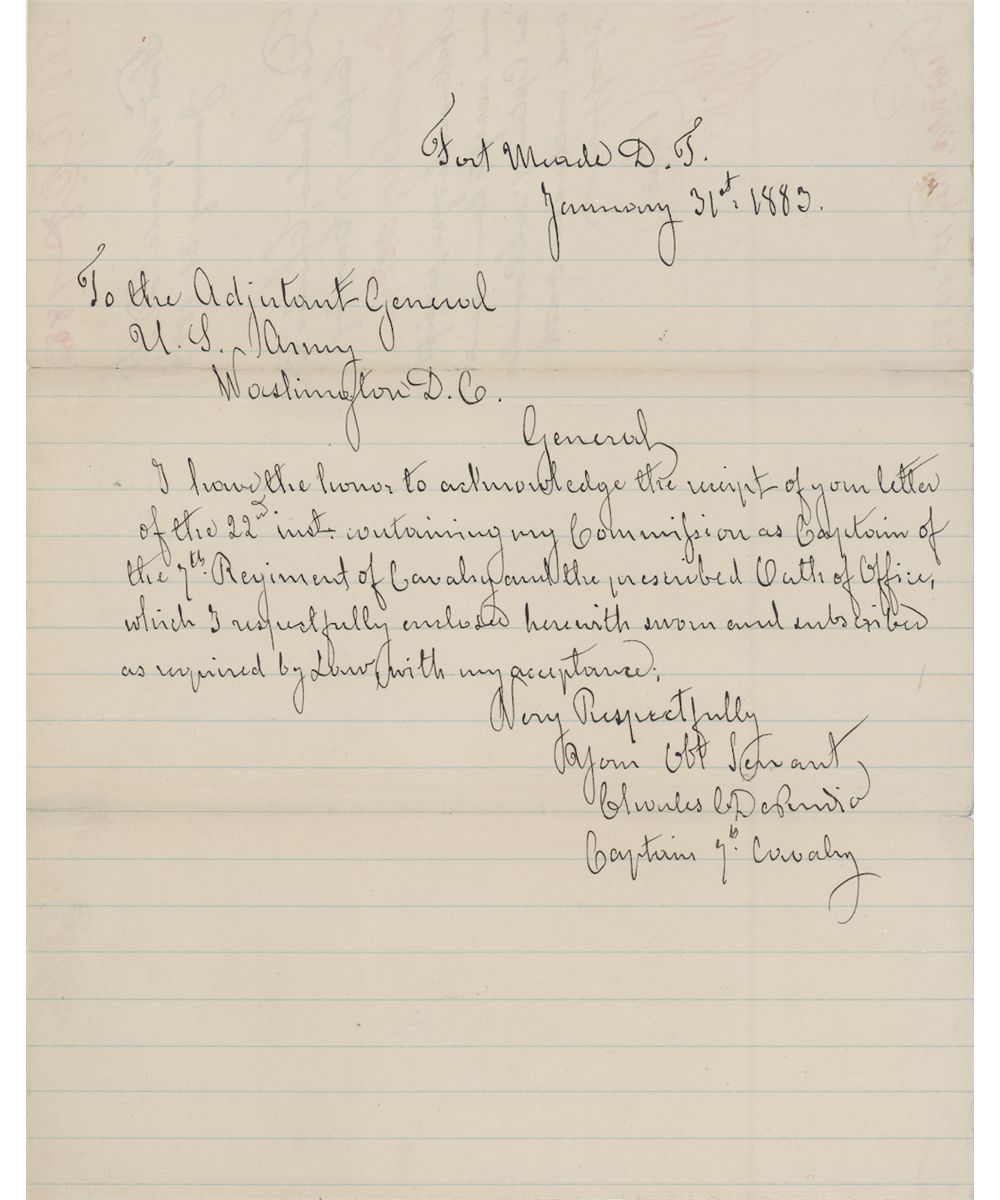 Fort Meade D. T.
January 31st. 1883.
To the Adjutant General
U. S. Army
Washington D. C.
General,
I have the honor to acknowledge the receipt of your letter
of the 22nd inst. containing my Commission as Captain of
the 7th. Regiment of Cavalry and the prescribed Oath of Office,
which I respectfully enclosed herewith sworn and subscribed
as required by Law, with my acceptance.
Very Respectfully
Your Obt Servant,
Charles C DeRudio
Captain 7th. Cavalry